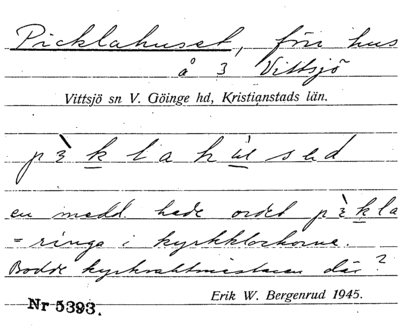 Picklahuset, förr hus
å 3 Vittsjö
Vittsjö sn V. Göinge hd, Kristianstads län.
pèklahúsed
en medd. hade ordet pèkla
= ringa i kyrkklockorna.
Bodde kyrkvaktmästaren där?
Erik W. Bergenrud 1945.
Nr 5393.